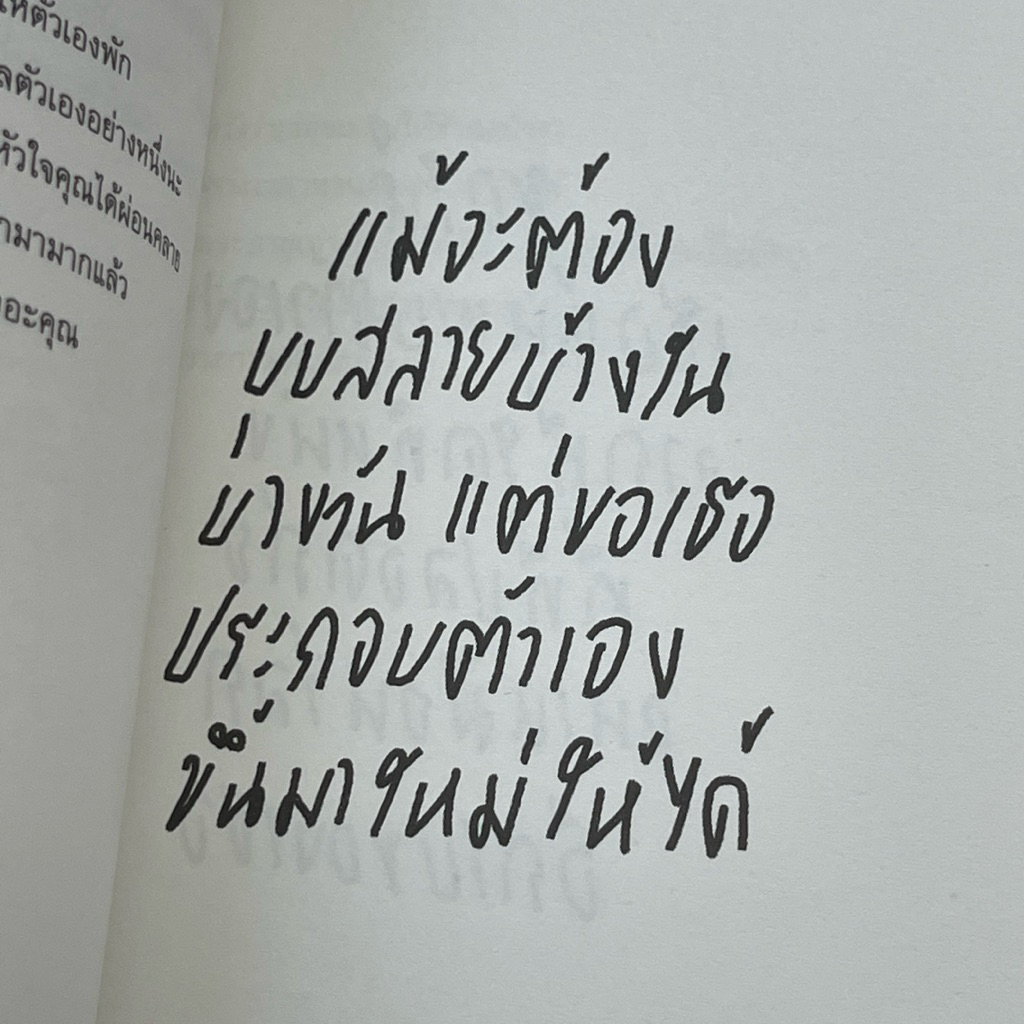 ตัวเองพัก
ตัวเองอย่างหนึ่งนะ
หัวใจคุณได้ผ่อนคลาย
มามากแล้ว
อะคุณ
แม้จะต้อง
บุบสลายบ้างใน
บางวัน แต่ขอเธอ
ประกอบตัวเอง
ขึ้นมาใหม่ให้ได้